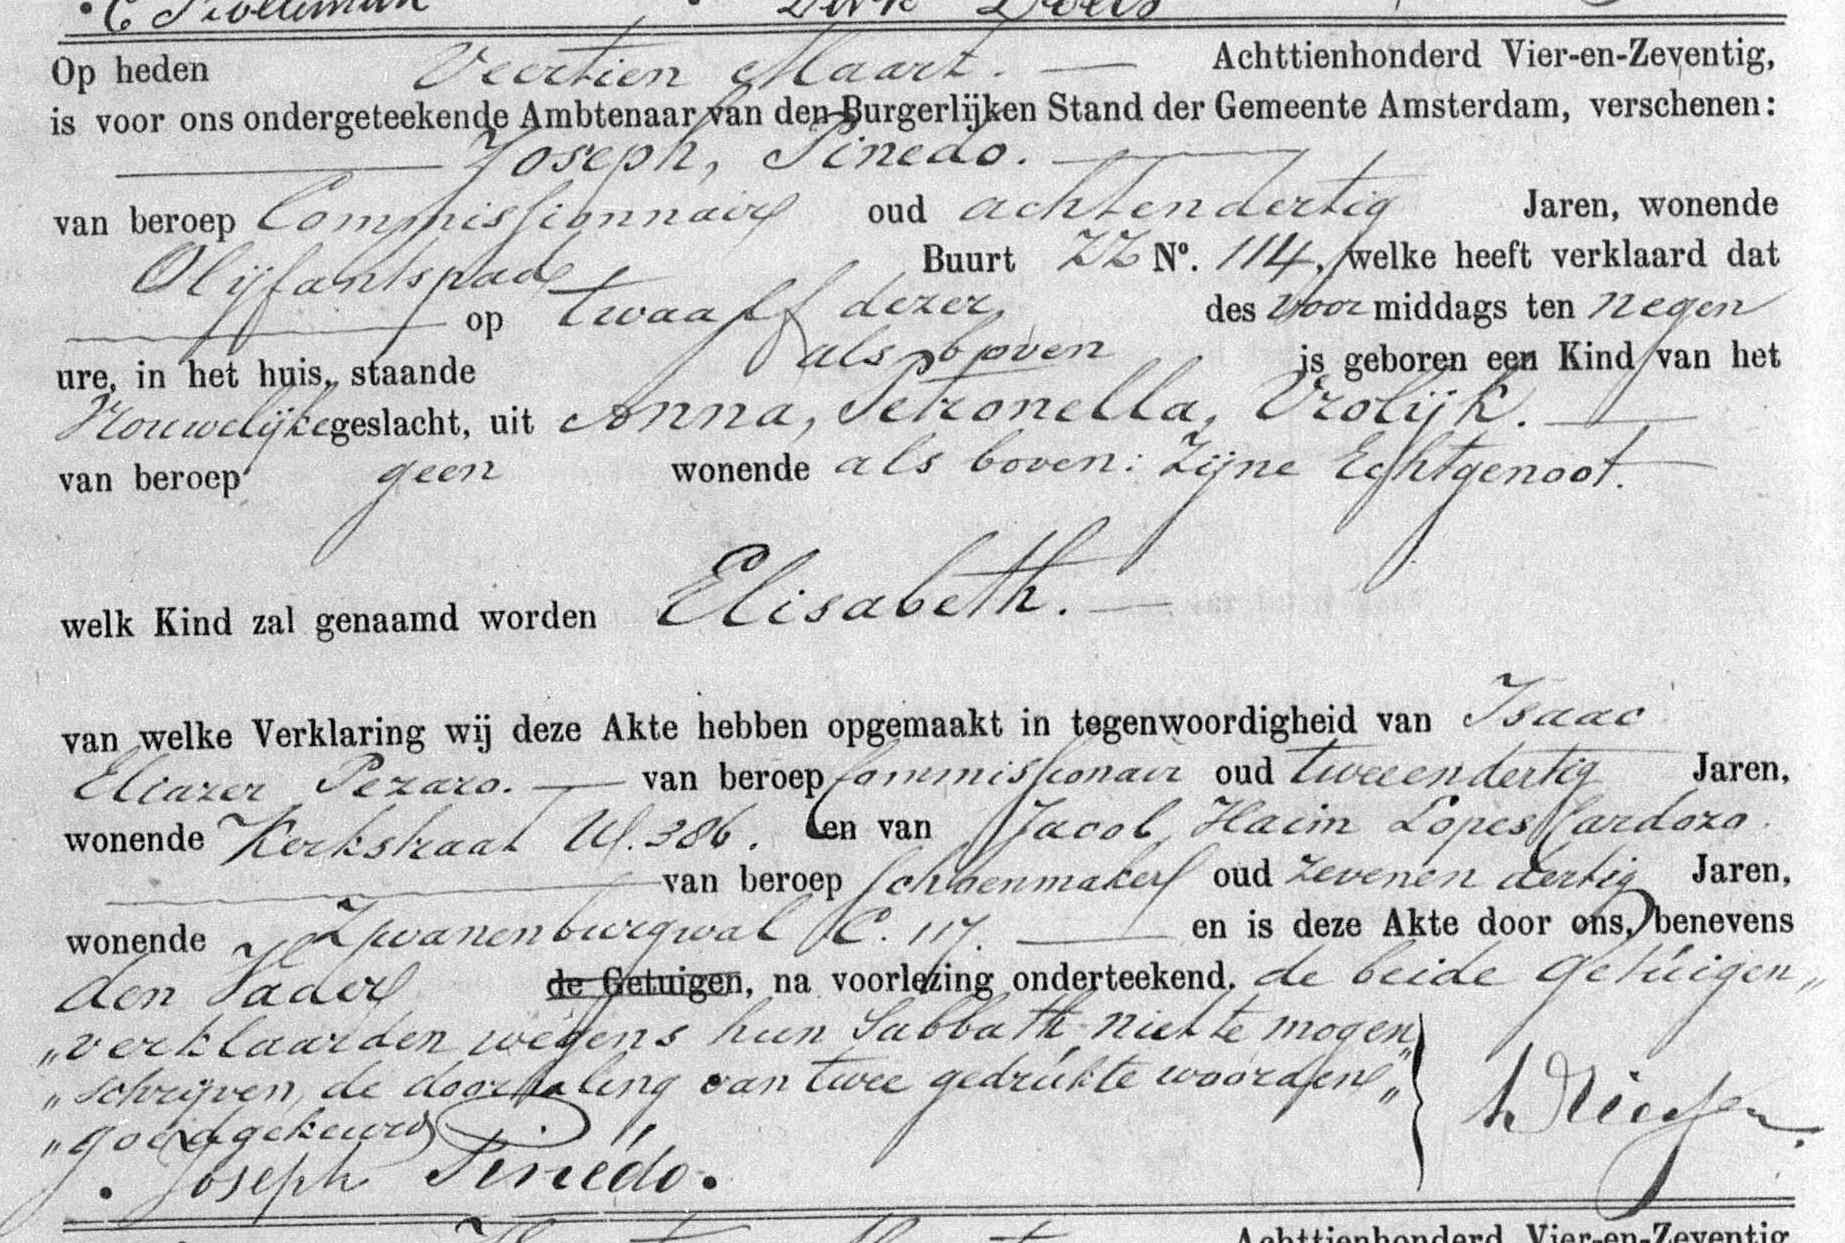 Dirk Doets
Op heden Veertien Maart. — Achttienhonderd Vier-en-Zeventig,
is voor ons ondergeteekende Ambtenaar van den Burgerlijken Stand der Gemeente Amsterdam, verschenen:
Joseph, Pinedo.
van beroep Commissionnair oud achtendertig Jaren, wonende
Olijfantspad Buurt ZZ No. 114, welke heeft verklaard dat
op twaalf dezer, des voor middags ten negen
ure, in het huis, staande als boven is geboren een Kind van het
Vrouwelijke geslacht, uit Anna, Petronella, Vrolijk.
van beroep geen wonende als boven: Zijne Echtgenoot.
welk Kind zal genaamd worden Elisabeth. —
van welke Verklaring wij deze Akte hebben opgemaakt in tegenwoordigheid van Isaac
Eliazer Pezaro. — van beroep Commissionair oud tweeendertig Jaren,
wonende Kerkstraat U. 386. en van Jacob Haim Lopes Cardozo.
van beroep Schoenmaker oud zevenen dertig Jaren,
wonende Zwanenburgwal C. 117. — en is deze Akte door ons, benevens
den Vader de Getuigen, na voorlezing onderteekend. de beide Getuigen„
„verklaarden wegens hun Sabbath niet te mogen„
„schrijven, de doorhaling van twee gedrukte woorden„
„goedgekeurd
Joseph Pinédo.
Achttienhonderd Vier-en-Zeventig